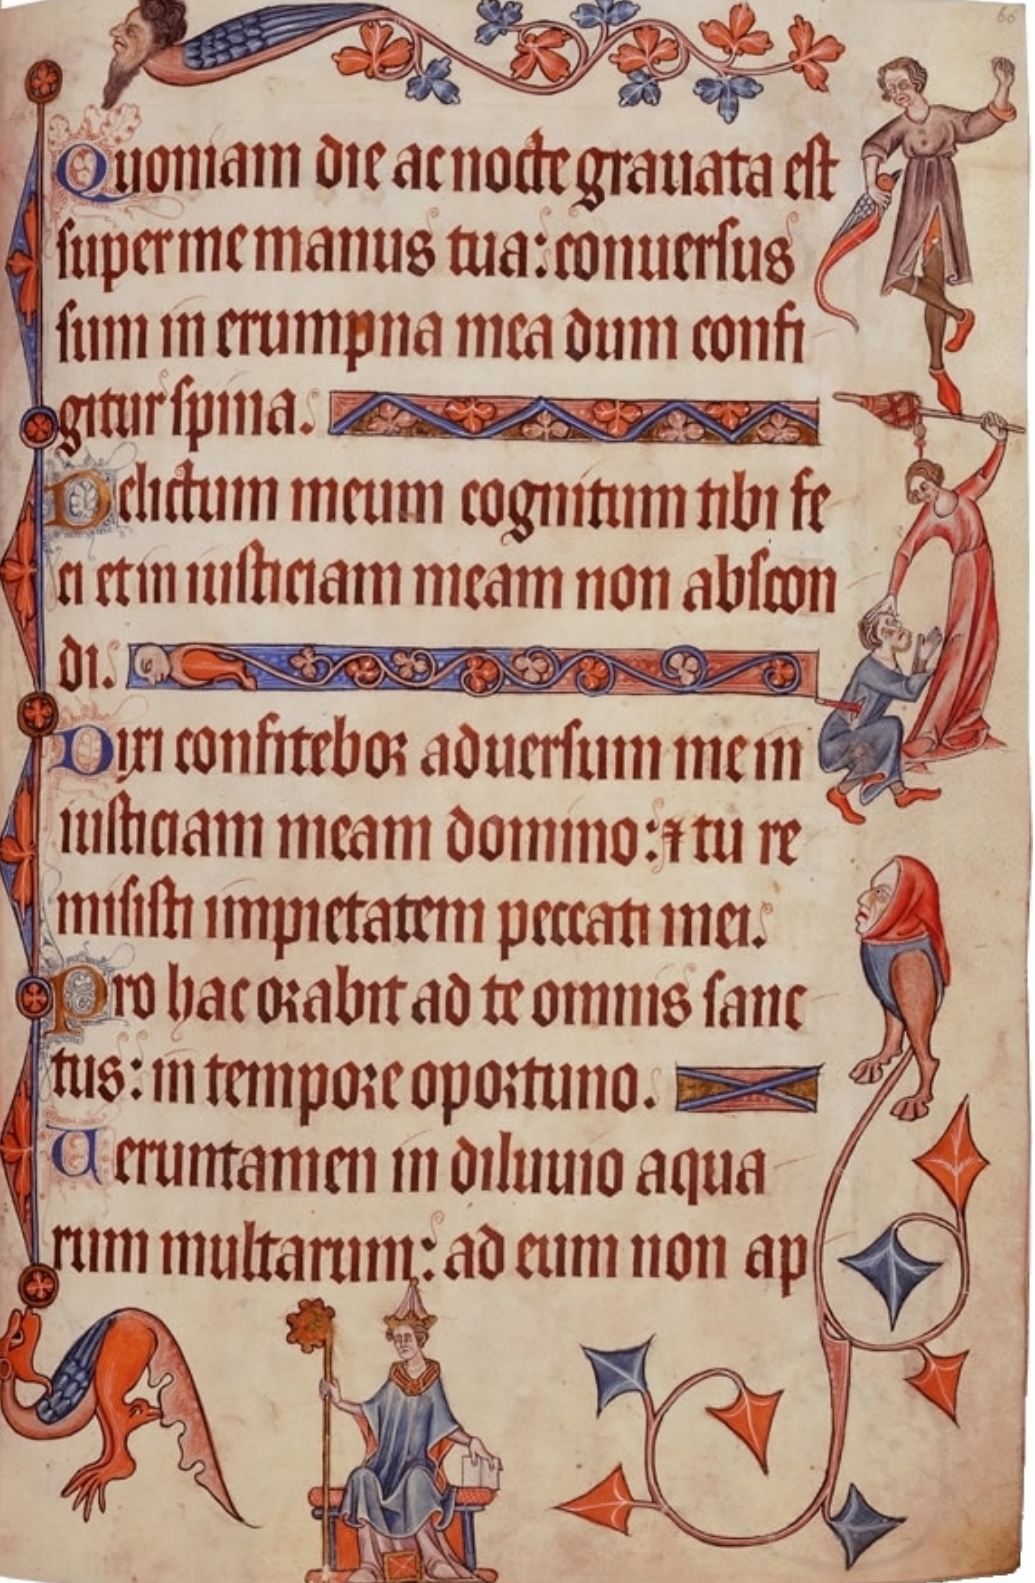 60
Quoniam die ac nocte grauata est
super me manus tua: conuersus
sum in erumpna mea dum confi
gitur spina.
Delictum meum cognitum tibi fe
ci et in iusticiam meam non abscon
di.
Dixi confitebor aduersum me in
iusticiam meam domino: ⁊ tu re
misisti impietatem peccati mei.
Pro hac orabit ad te omnis sanc
tus: in tempore oportuno.
Ueruntamen in diluuio aqua
rum multarum: ad eum non ap